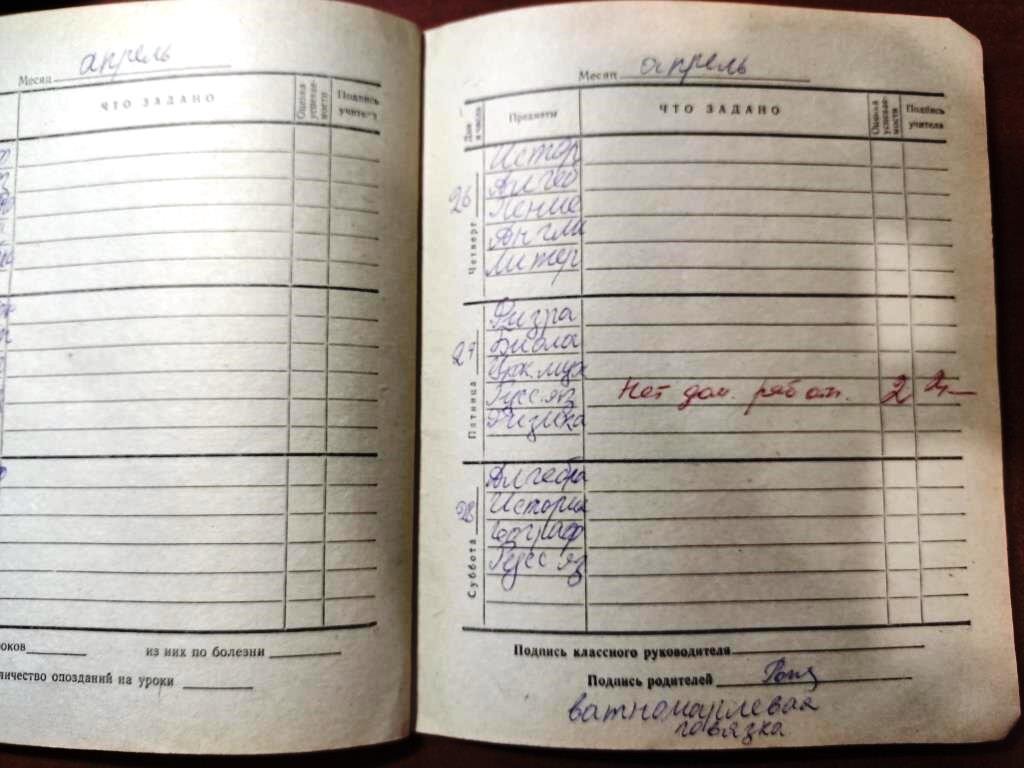 Месяц апрель
ЧТО ЗАДАНО
Оценка успевае-мости
Подпись учителя
роков
из них по болезни
личество опозданий на уроки
Месяц апрель
Дни и числа
Предметы
ЧТО ЗАДАНО
Оценка успевае-мости
Подпись учителя
Четверг 26
Истор
Алгеб
Пение
Англи
Литер
Пятница 27
Физра
Биола
Русс яз Нет дом. работ. 2
Физика
Суббота 28
Алгебра
История
Географ
Русс яз
Подпись классного руководителя
Подпись родителей
ватномарлевая
повязка